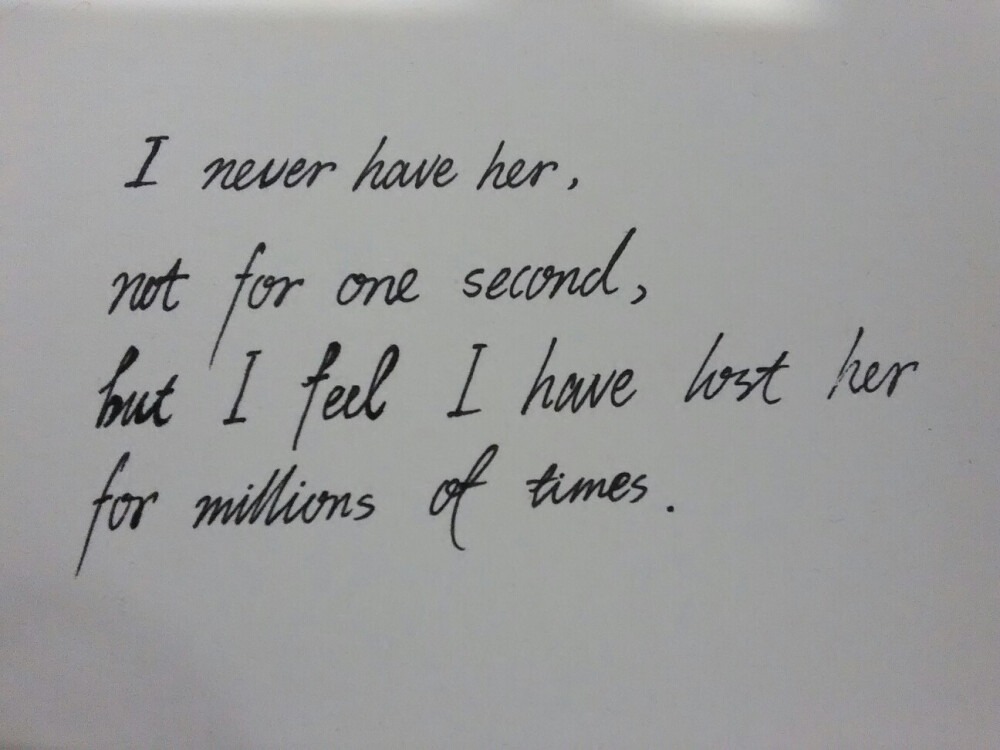 I never have her,
not for one second,
but I feel I have lost her
for millions of times.